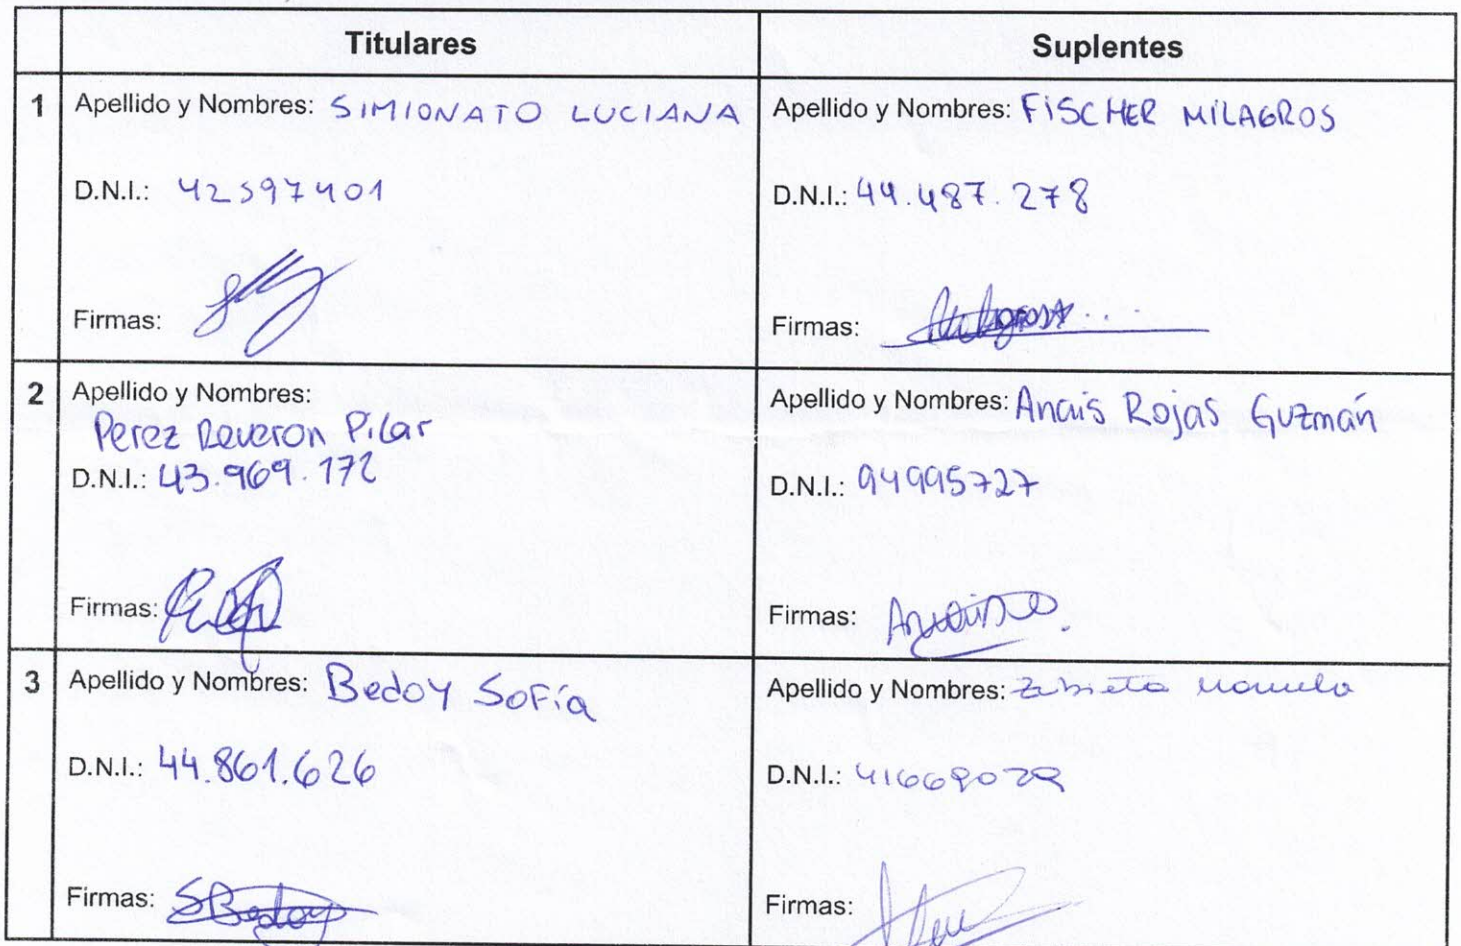 Titulares
Suplentes
1
Apellido y Nombres: SIMIONATO LUCIANA
D.N.I.: 42597401
Firmas:
Apellido y Nombres: FISCHER MILAGROS
D.N.I.: 44.487.278
Firmas:
2
Apellido y Nombres:
Perez Reveron Pilar
D.N.I.: 43.969.172
Firmas:
Apellido y Nombres: Anais Rojas Guzmán
D.N.I.: 94995727
Firmas:
3
Apellido y Nombres: Bedoy Sofía
D.N.I.: 44.861.626
Firmas: SBedoy
Apellido y Nombres:
D.N.I.:
Firmas: